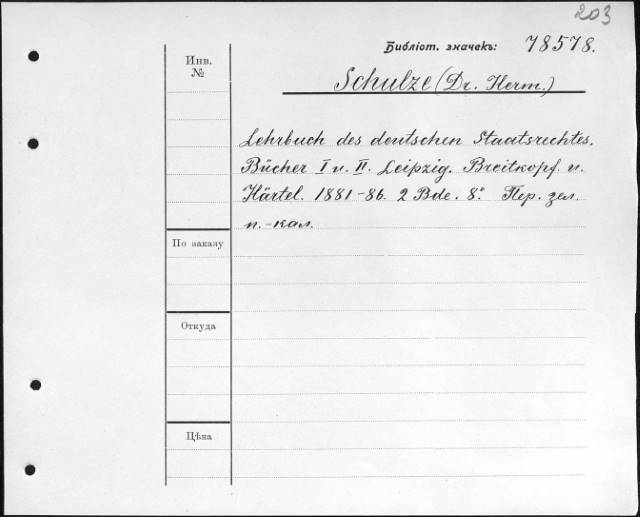 203
Библіот. значекъ: 78578.
Инв.
№
Schulze (Dr. Herm.)
Lehrbuch des deutschen Staatsrechtes.
Bücher I u. II. Leipzig. Breitkopf u.
Härtel. 1881-86. 2 Bde. 8.° Пер. зел.
п.-кал.
По заказу
Откуда
Цѣна